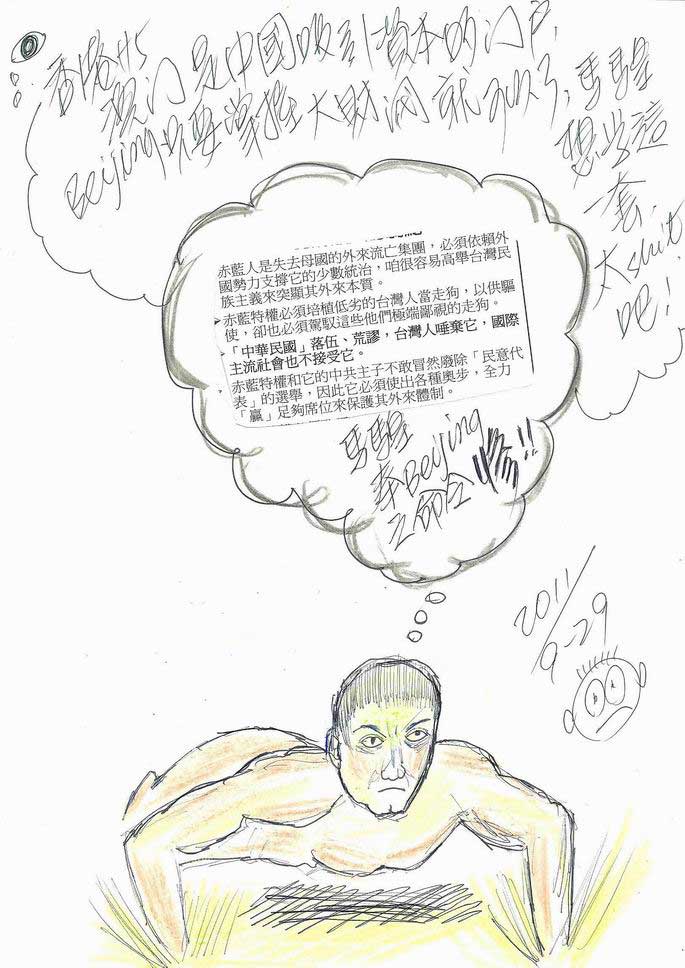 香港は
澳门是中國吸引資本的门户,
Beijing只要掌握大財洞就可以了,
馬騜
想出這
一套,
太shit
吧!
赤藍人是失去母國的外來流亡集團,必須依賴外
國勢力支撐它的少數統治,咱很容易高舉台灣民
族主義來突顯其外來本質。
赤藍特權必須培植低劣的台灣人當走狗,以供驅
使,卻也必須駕馭這些他們極端鄙視的走狗。
「中華民國」落伍、荒謬,台灣人唾棄它,國際
主流社會也不接受它。
赤藍特權和它的中共主子不敢冒然廢除「民意代
表」的選舉,因此它必須使出各種奧步,全力
「贏」足夠席位來保護其外來體制。
馬騜
奉Beijing
之命令
慘!!
2011/
9-29